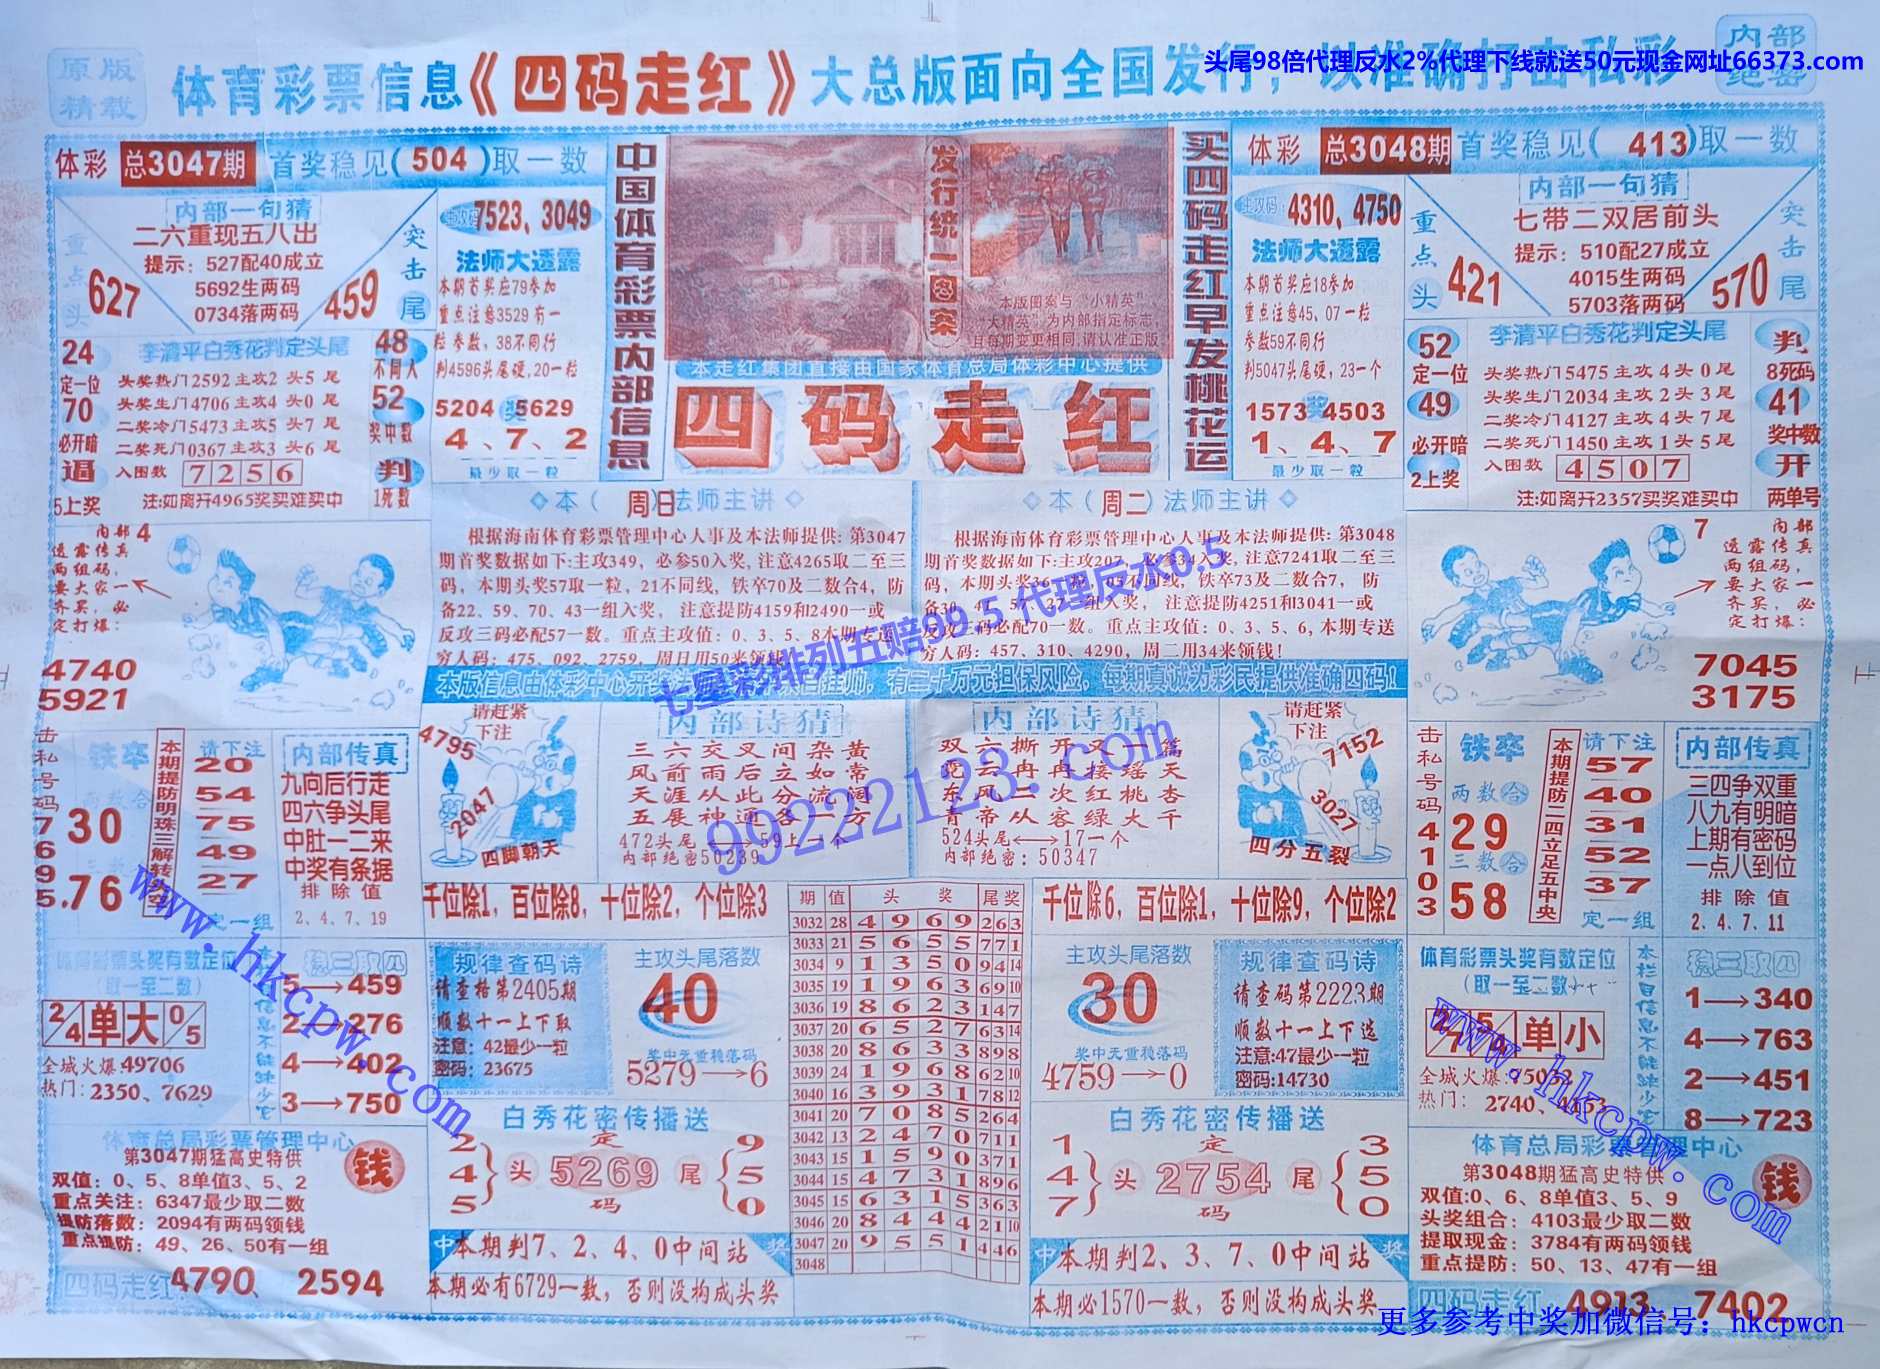 头尾98倍代理反水2%代理下线就送50元现金网址66373.com
原版
精载
体育彩票信息《四码走红》大总版面向全国发行，以准确打击私彩
内部
绝密
体彩 总3047期 首奖稳见(504)取一数
内部一句猜
二六重现五八出
提示：527配40成立
5692生两码
0734落两码
重点头
627
突击尾
459
主攻码：7523、3049
法师大透露
本期首奖应79参加
重点注意3529有一
粒参数，38不同行
判4596头尾硬，20一粒
5204奖5629
4、7、2
最少取一粒
24
定一位
70
必开暗
逼
5上奖
李清平白秀花判定头尾
头奖热门2592主攻2头5尾
头奖生门4706主攻4头0尾
二奖冷门5473主攻5头7尾
二奖死门0367主攻3头6尾
入围数 7256
注:如离开4965奖买难买中
48
不同人
52
奖中数
判
1死数
中国体育彩票内部信息
发行统一图案
本版图案与“小精英”、
“大精英”为内部指定标志，
且每期变更相同,请认准正版
本走红集团直接由国家体育总局体彩中心提供
四码走红
买四码走红早发桃花运
体彩 总3048期 首奖稳见(413)取一数
主攻码：4310、4750
法师大透露
本期首奖应18参加
重点注意45、07一粒
参数59不同行
判5047头尾硬，23一个
1573奖4503
1、4、7
最少取一粒
内部一句猜
七带二双居前头
提示：510配27成立
4015生两码
5703落两码
重点头
421
突击尾
570
52
定一位
49
必开暗
2上奖
李清平白秀花判定头尾
头奖热门5475主攻4头0尾
头奖生门2034主攻2头3尾
二奖冷门4127主攻4头7尾
二奖死门1450主攻1头5尾
入围数 4507
注:如离开2357买奖难买中
判
8死码
41
奖中数
开
两单号
内部4
透露传真
两组码，
要大家一
齐买，必
定打爆：
4740
5921
本（周日）法师主讲
根据海南体育彩票管理中心人事及本法师提供：第3047
期首奖数据如下:主攻349，必参50入奖，注意4265取二至三
码，本期头奖57取一粒，21不同线，铁卒70及二数合4，防
备22、59、70、43一组入奖， 注意提防4159和2490一或
反攻三码必配57一数。重点主攻值：0、3、5、8本期专送
穷人码：475、092、2759，周日用50来领钱
本（周二）法师主讲
根据海南体育彩票管理中心人事及本法师提供：第3048
期首奖数据如下:主攻207，必参34入奖，注意7241取二至三
码，本期头奖36一粒，05不同线，铁卒73及二数合7， 防
备30、41、57、37一组入奖， 注意提防4251和3041一或
反攻三码必配70一数。重点主攻值：0、3、5、6,本期专送
穷人码：457、310、4290，周二用34来领钱！
7 内部
透露传真
两组码，
要大家一
齐买，必
定打爆：
7045
3175
七星彩排列五赔99.5 代理反水0.5
99222123.com
击私号码7695.
铁卒
两数合
30
三数合
76
本期提防明珠三解转头空
请下注
20
54
75
49
27
定一组
内部传真
九向后行走
四六争头尾
中肚一二来
中奖有条据
排除值
2、4、7、19
请赶紧
下注
4795
2047
四脚朝天
内部诗猜
三六交叉间杂黄
风前雨后立如常
天涯从此分流阔
五展神通各一方
472头尾⟷59上一个
内部绝密50239
内部诗猜
双六撕开又一篇
霓云冉冉接瑶天
东风一次红桃杏
青帝从客绿大千
524头尾⟷17一个
内部绝密：50347
请赶紧
下注
7152
3027
四分五裂
击私号码4103
铁卒
两数合
29
三数合
58
本期提防二四立足五中央
请下注
57
40
31
52
37
定一组
内部传真
三四争双重
八九有明暗
上期有密码
一点八到位
排除值
2、4、7、11
千位除1，百位除8，十位除2，个位除3
千位除6，百位除1，十位除9，个位除2
体育彩票头奖有数定位
(取一至二数)
2/4 单大 0/5
全城火爆:49706
热门：2350、7629
稳三取四
5→459
2→276
4→402
3→750
规律查码诗
请查格第2405期
顺数十一上下取
注意：42最少一粒
密码：23675
主攻头尾落数
40
奖中无重稳落码
5279→6
白秀花密传播送
2
4
5
头
定
5269
码
尾
9
5
0
中 本期判7、2、4、0中间站 奖
本期必有6729一数，否则没构成头奖
期 值 头奖 尾奖
3032 28 4969 263
3033 21 5655 771
3034 9 1350 9414
3035 19 1963 6910
3036 19 8623 147
3037 20 6527 6314
3038 20 8633 898
3039 24 1968 6210
3040 16 3931 7812
3041 20 7085 264
3042 13 2470 711
3043 15 1590 371
3044 15 4731 896
3045 15 6315 363
3046 20 8444 2110
3047 20 9551 446
3048
主攻头尾落数
30
奖中无重稳落码
4759→0
规律查码诗
请查码第2223期
顺数十一上下选
注意:47最少一粒
密码:14730
白秀花密传播送
1
4
7
头
定
2754
码
尾
3
5
0
中 本期判2、3、7、0中间站 奖
本期必1570一数，否则没构成头奖
体育彩票头奖有数定位
(取一至二数)
单小
全城火爆:
热门： 2740、
本栏目信息不能缺少它
稳三取四
1→340
4→763
2→451
8→723
体育总局彩票管理中心
第3047期猛高史特供
双值：0、5、8单值3、5、2
重点关注：6347最少取二数
提防落数：2094有两码领钱
重点提防：49、26、50有一组
钱
四码走红4790、2594
体育总局彩票管理中心
第3048期猛高史特供
双值:0、6、8单值3、5、9
头奖组合：4103最少取二数
提取现金：3784有两码领钱
重点提防：50、13、47有一组
钱
四码走红 4913、7402
www.hkcpw.com
www.hkcpw.com
更多参考中奖加微信号：hkcpwcn